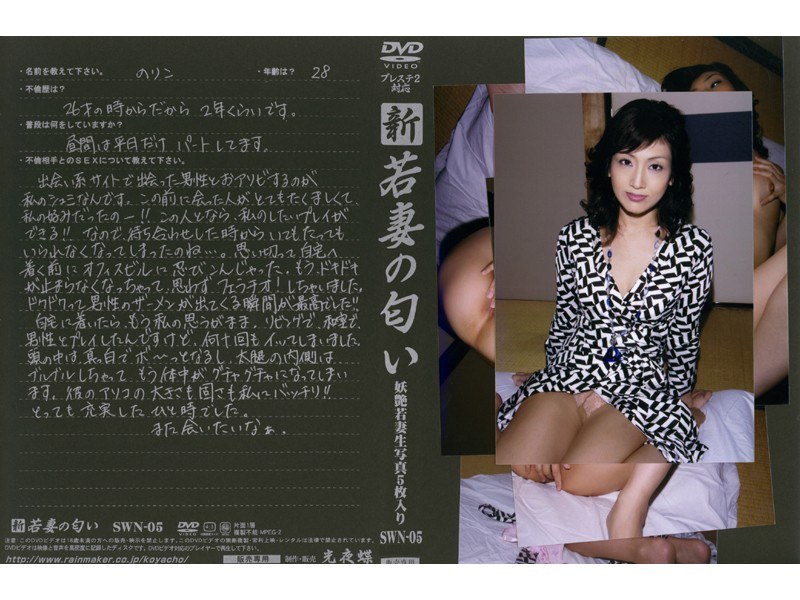 ・名前を教えて下さい。 のリン ・年齢は? 28
・不倫歴は?
26才の時からだから 2年くらいです。
・普段は何をしていますか?
昼間は平日だけ パートしてます。
・不倫相手とのSEXについて教えて下さい。
出会い系サイトで出会った男性とおアソビするのが
私のシュミなんです。この前に会った人がとてもたくましくて、
私の好みだったのー!! この人となら、私のしたいプレイが
できる!! なので、待ち合わせした時からいてもたっても
いられなくなってしまったのね…。思い切って自宅へ
着く前にオフィスビルに忍びこんじゃった。もう、ドキドキ
が止まらなくなっちゃって、思わず、フェラチオ!しちゃいました。
ドクドクって男性のザーメンが出てくる瞬間が最高でした!!
自宅に着いたら、もう私の思うがまま。リビングで、和室で、
男性とプレイしたんですけど、何十回もイッてしまいました。
頭の中は、真白でボ〜っとなるし、太腿の内側は
ブルブルしちゃって、もう体中がグチャグチャになってしまい
ます。彼のアソコの太さも固さも私にバッチリ!!
とっても充実したひと時でした。
また会いたいなぁ。
新 若妻の匂い SWN-05 DVD VIDEO 4:3 片面1層 複製不能 MPEG-2
http://www.rainmaker.co.jp/koyacho/ 販売専用 制作・販売 光夜蝶
DVD
VIDEO
プレステ2
対応
新 若妻の匂い
妖艶若妻生写真5枚入り
SWN-05
販売専用